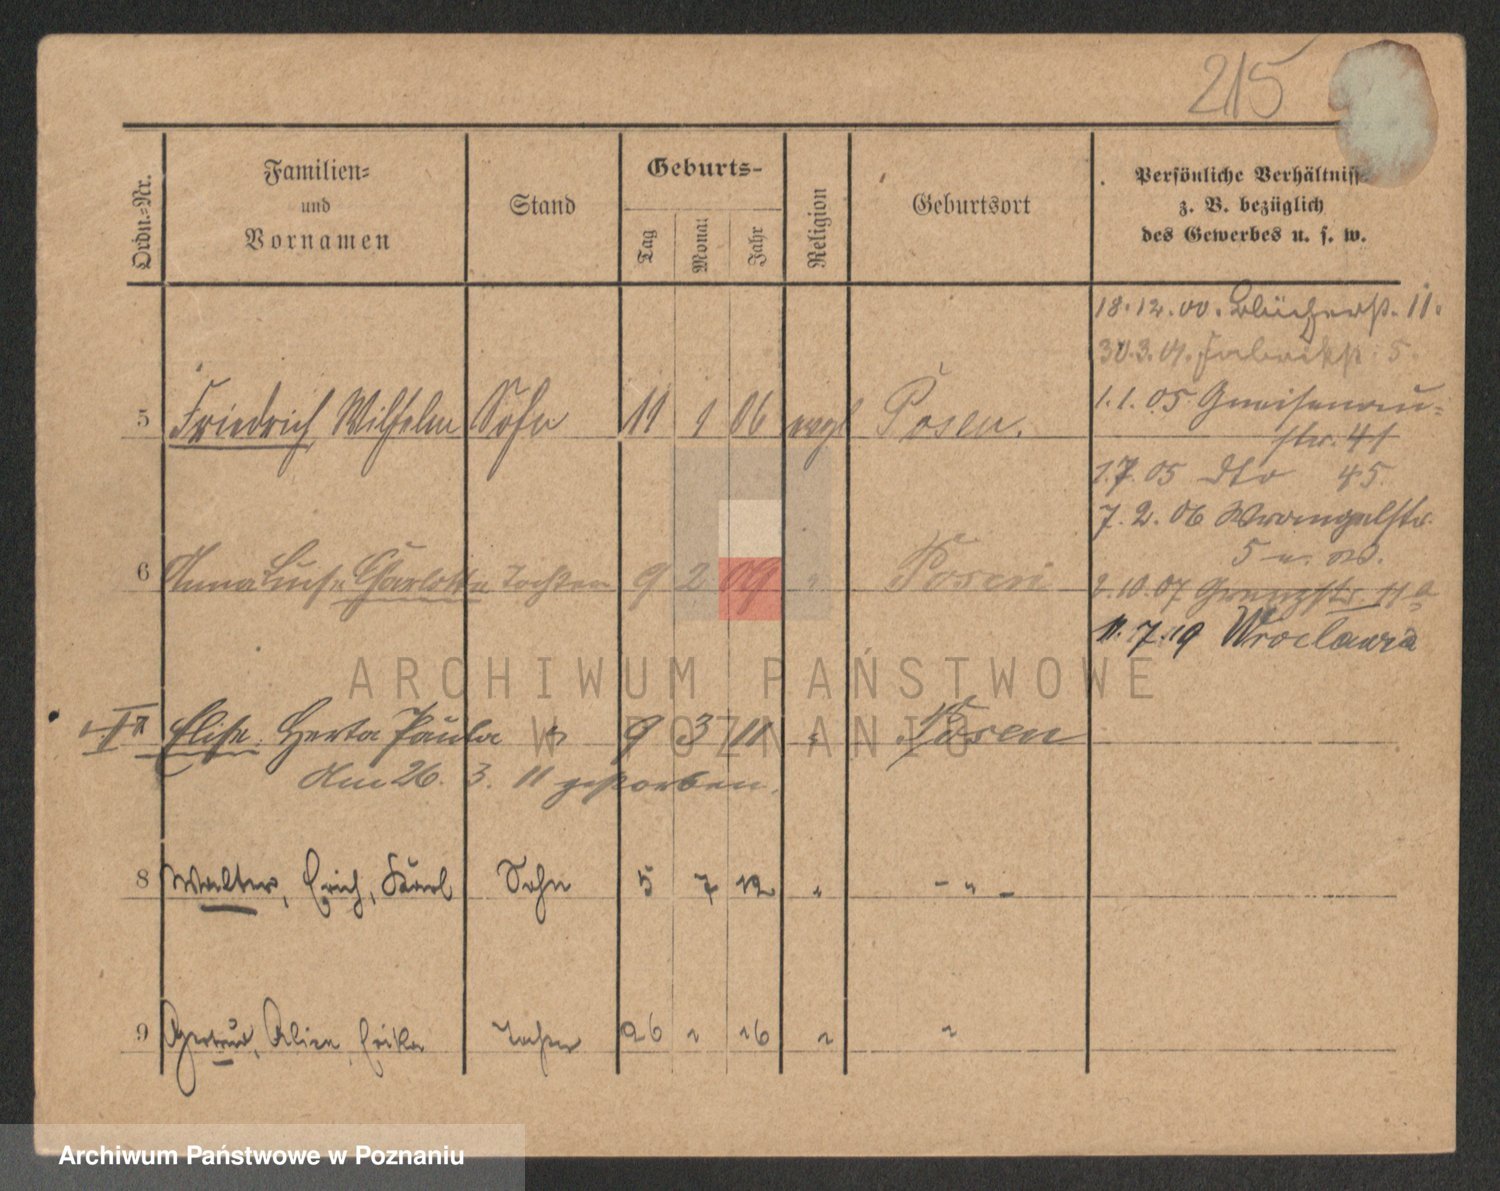 215
Ordn.=Nr.
Familien=
und
Vornamen
Stand
Geburts-
Tag
Monat
Jahr
Religion
Geburtsort
Persönliche Verhältnisse
z. B. bezüglich
des Gewerbes u. s. w.
18.12.00. Blücherstr. 11.
30.3.01. Fabrikstr. 5.
1.1.05 Gneisenau=
str. 41
5 Friedrich Wilhelm Sohn 11 1 06 evgl Posen.
1.7.05 dto 45
7.2.06 Wrangelstr.
5
6 Anna Luise Charlotte Tochter 9 2 09 " Posen
2.10.07 Grenzstr. 11a
11.7.19 Wroclawia
ARCHIWUM PAŃSTWOWE
W POZNANIU
Elise Herta Paula " 9 3 11 " Posen
Am 26. 3. 11 gestorben.
8 Walter, Erich, Karl Sohn 5 7 12 " - " -
9 Gertrud, Alice, Erika Tochter 26 1 16 " "
Archiwum Państwowe w Poznaniu